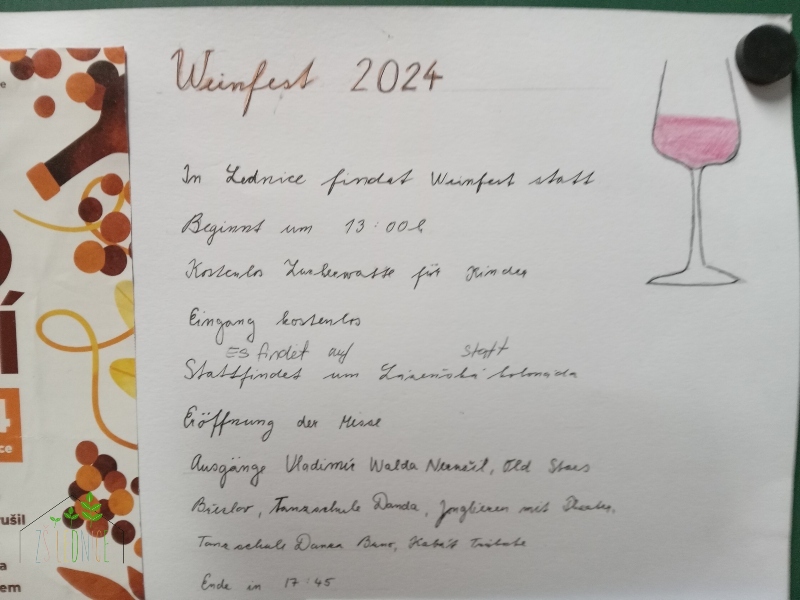 Weinfest 2024
In Lednice findet Weinfest statt
Beginnt um 13:00h
Kostenlos Zuckerwatte für Kinder
Eingang kostenlos
Es findet auf statt
Stattfindet um Lázeňská kolonáda
Eröffnung der Messe
Ausgänge Vladimír Walda Nerušil, Old Stars
Břeclav, Tanzschule Danda, Jonglieren mit Theater,
Tanzschule Dance Brno, Kabát Tribute
Ende in 17:45
Í
4
ce
rušil
a
em
ZS LEDNICE